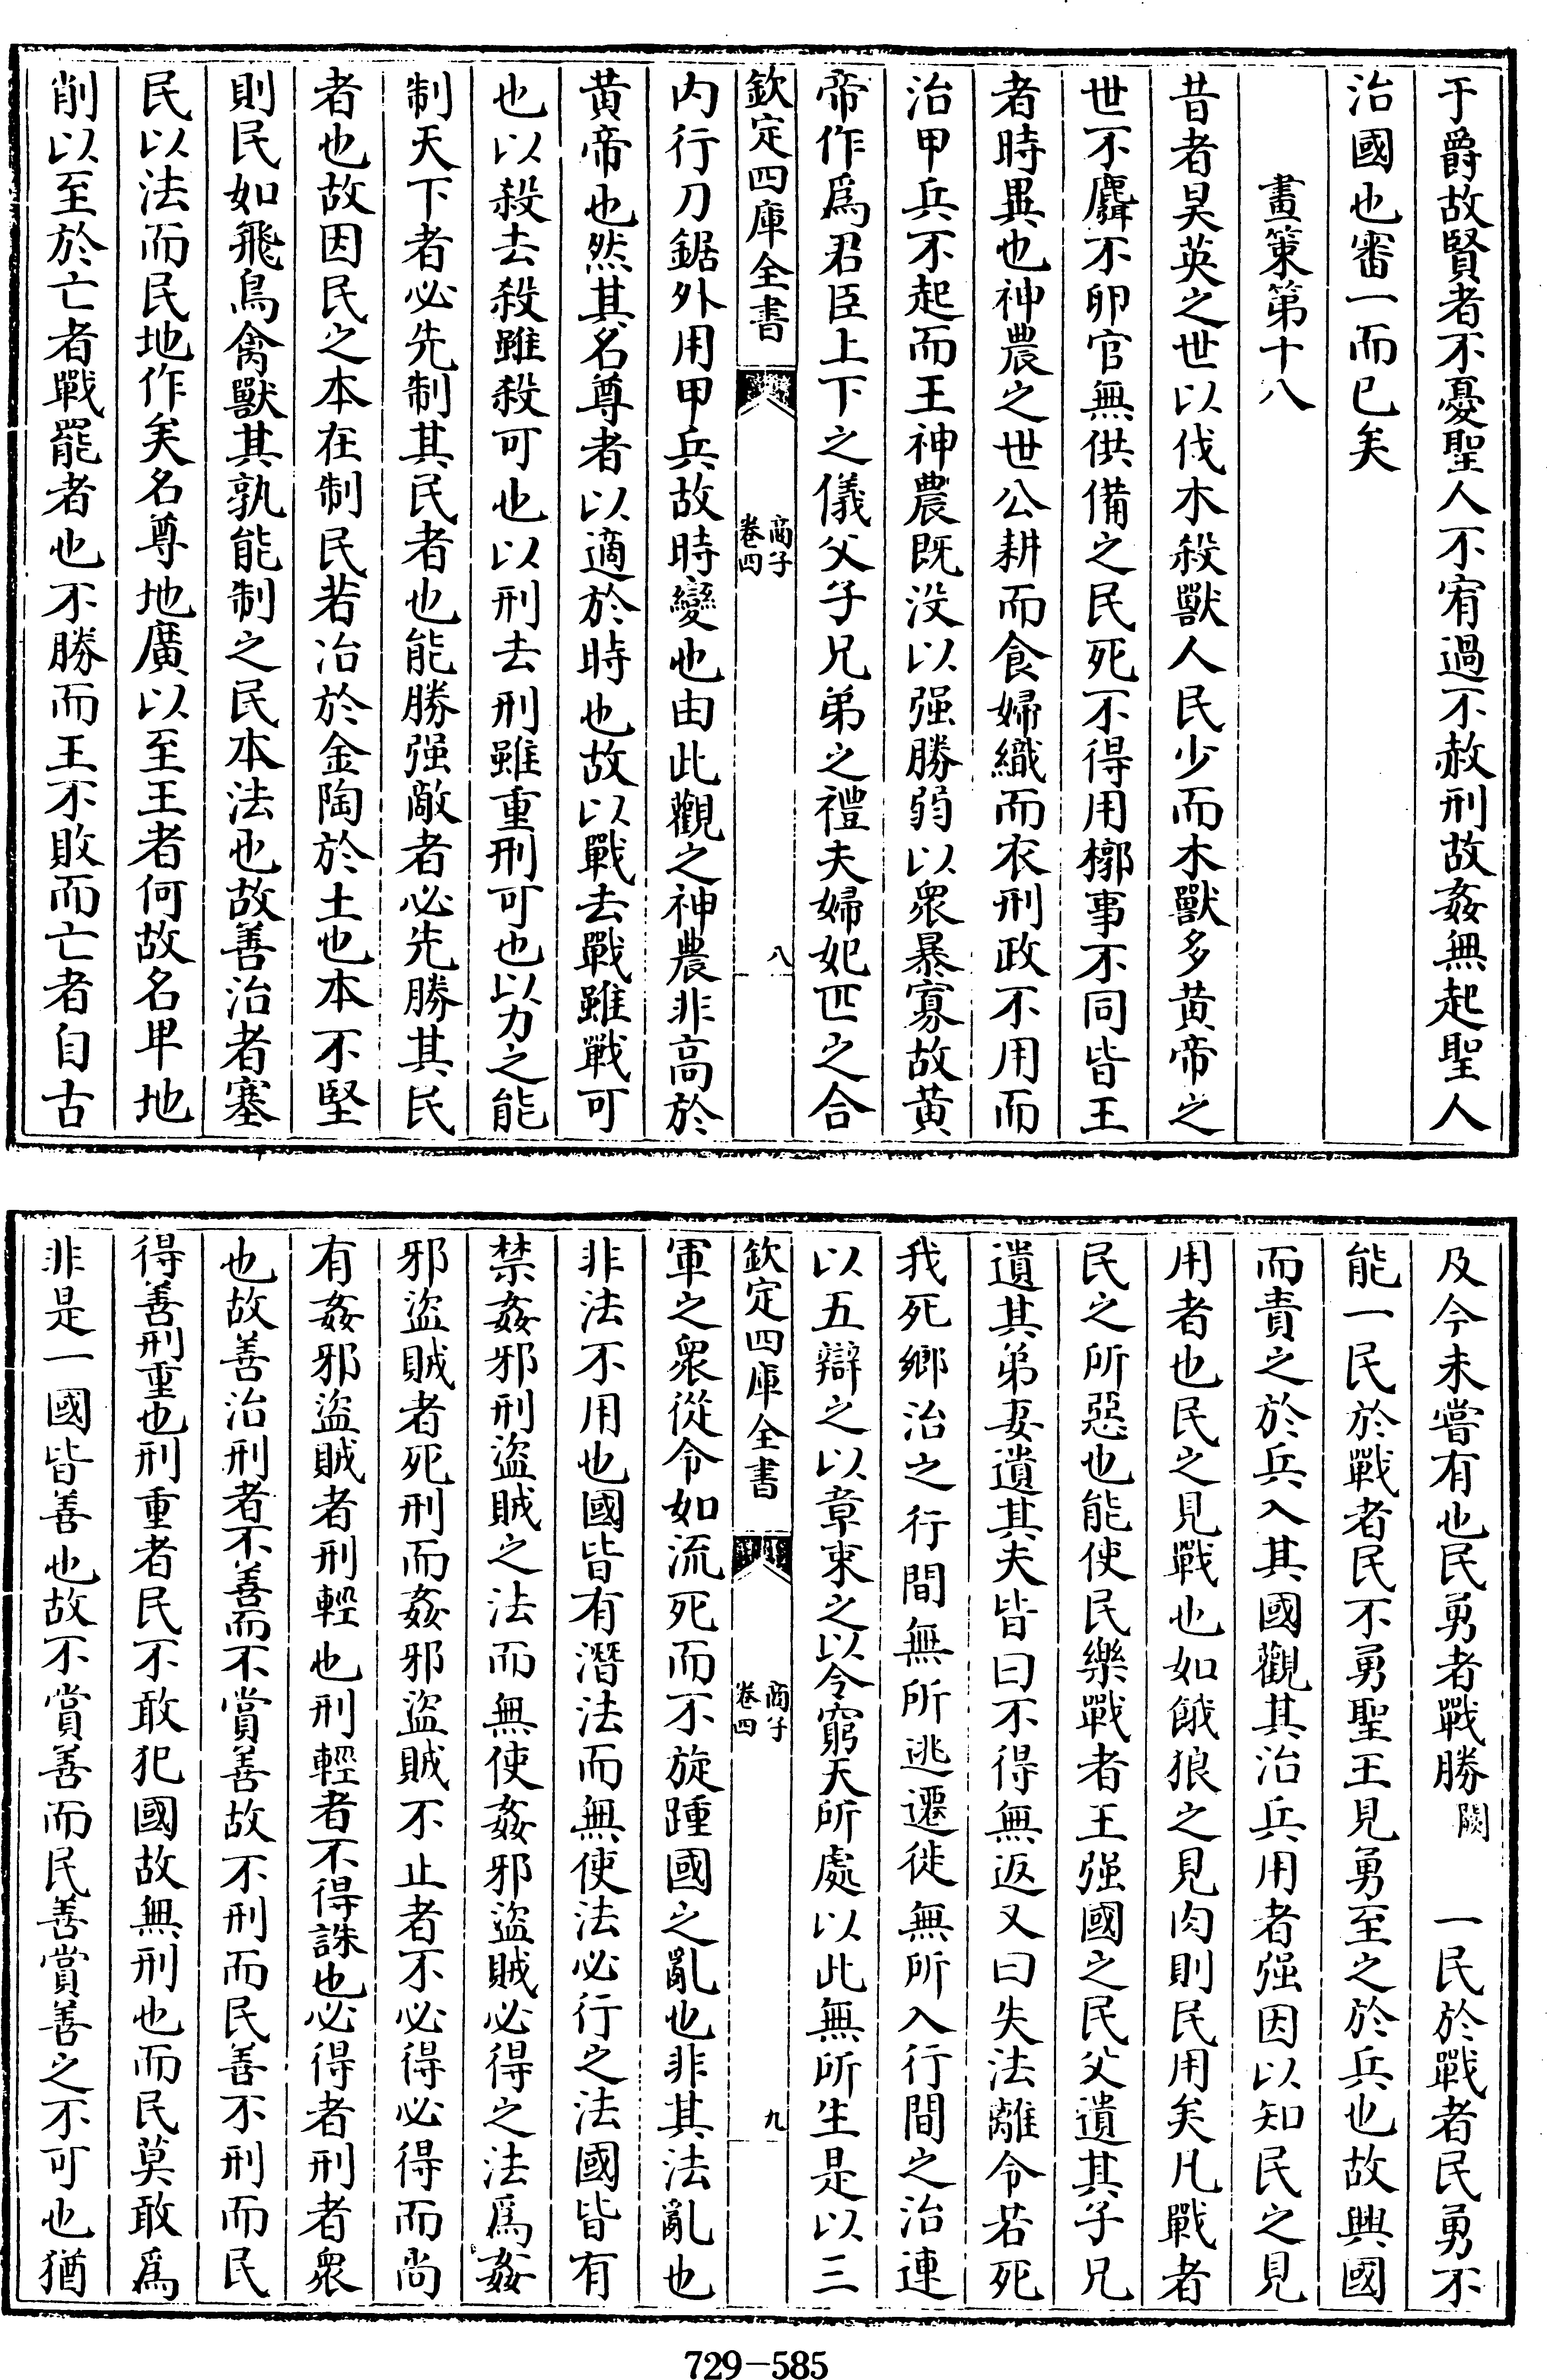 于爵故賢者不憂聖人不宥過不赦刑故姦無起聖人
治國也審一而已矣
畫策第十八
昔者昊英之世以伐木殺獸人民少而木獸多黄帝之
世不麛不卵官無供備之民死不得用槨事不同皆王
者時異也神農之世公耕而食婦織而衣刑政不用而
治甲兵不起而王神農既没以强勝弱以衆暴寡故黄
帝作爲君臣上下之儀父子兄弟之禮夫婦妃匹之合
欽定四庫全書
商子
卷四
八
内行刀鋸外用甲兵故時變也由此觀之神農非高於
黄帝也然其名尊者以適於時也故以戰去戰雖戰可
也以殺去殺雖殺可也以刑去刑雖重刑可也以力之能
制天下者必先制其民者也能勝强敵者必先勝其民
者也故因民之本在制民若冶於金陶於土也本不堅
則民如飛鳥禽獸其孰能制之民本法也故善治者塞
民以法而民地作矣名尊地廣以至王者何故名卑地
削以至於亡者戰罷者也不勝而王不敗而亡者自古
及今未嘗有也民勇者戰勝闕 一民於戰者民勇不
能一民於戰者民不勇聖王見勇至之於兵也故興國
而責之於兵入其國觀其治兵用者强因以知民之見
用者也民之見戰也如餓狼之見肉則民用矣凡戰者
民之所惡也能使民樂戰者王强國之民父遺其子兄
遺其弟妻遺其夫皆曰不得無返又曰失法離令若死
我死鄉治之行間無所逃遷徙無所入行間之治連
以五辯之以章束之以令窮天所處以此無所生是以三
欽定四庫全書
商子
卷四
九
軍之衆從令如流死而不旋踵國之亂也非其法亂也
非法不用也國皆有潛法而無使法必行之法國皆有
禁姦邪刑盜賊之法而無使姦邪盜賊必得之法爲姦
邪盜賊者死刑而姦邪盜賊不止者不必得必得而尚
有姦邪盜賊者刑輕也刑輕者不得誅也必得者刑者衆
也故善治刑者不善而不賞善故不刑而民善不刑而民
得善刑重也刑重者民不敢犯國故無刑也而民莫敢爲
非是一國皆善也故不賞善而民善賞善之不可也猶
729-585